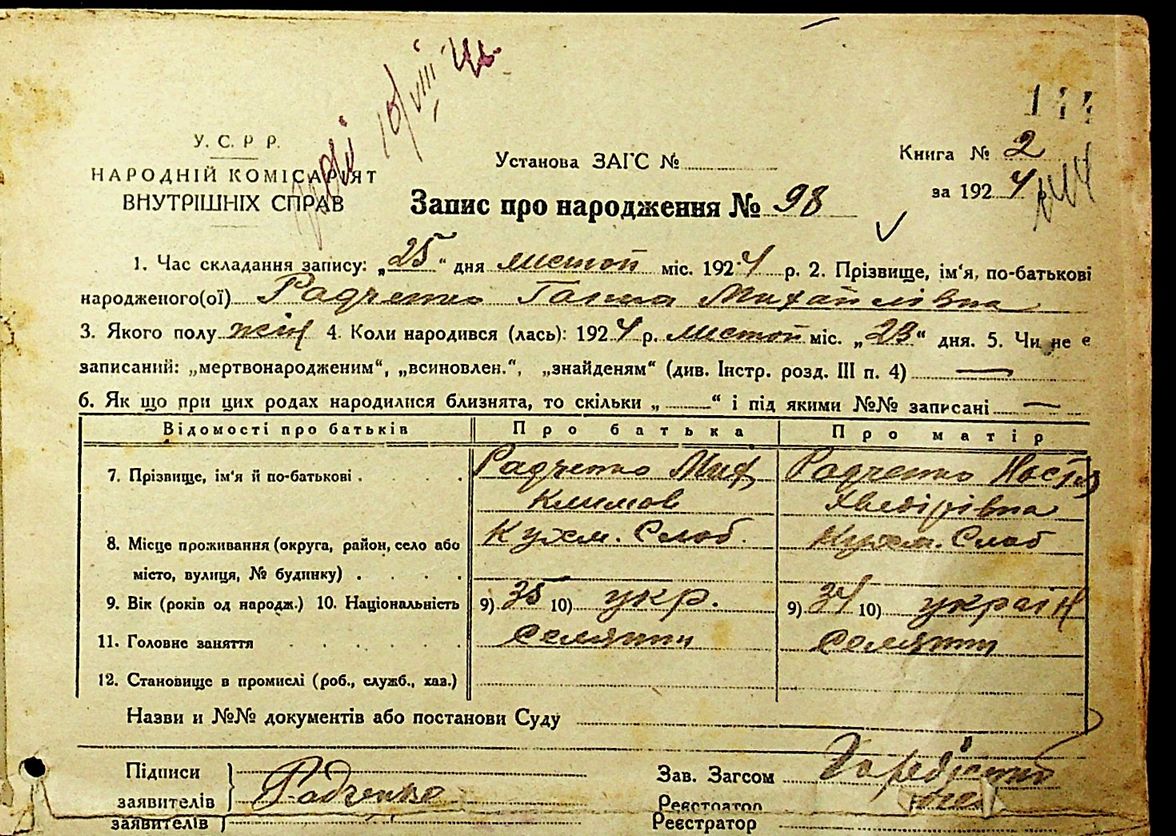 144
У. С. Р. Р.
НАРОДНІЙ КОМІСАРІЯТ
ВНУТРІШНІХ СПРАВ
Установа ЗАГС №
Книга № 2
за 1924
Запис про народження № 98
1. Час складання запису: „25“ дня листоп міс. 1924 р. 2. Прізвище, ім'я, по-батькові
народженого(ої) Радченко Ганна Михайлівна
3. Якого полу жін 4. Коли народився (лась): 1924 р. листоп міс. „23“ дня. 5. Чи не є
записаний: „мертвонародженим“, „всиновлен.“, „знайденям“ (див. Інстр. розд. III п. 4) —
6. Як що при цих родах народилися близнята, то скільки „ “ і під якими №№ записані —
Відомості про батьків Про батька Про матір
7. Прізвище, ім'я й по-батькові Радченко Мих Радченко Настя
Климов Хведірівна
8. Місце проживання (округа, район, село або Кухм. Слоб. Кухм. Слоб
місто, вулиця, № будинку)
9. Вік (років од народж.) 10. Національність 9) 35 10) укр. 9) 34 10) україн
11. Головне заняття селянин селянин
12. Становище в промислі (роб., служб., хаз.)
Назви и №№ документів або постанови Суду
Підписи Зав. Загсом
заявителів Радченко Реєстратор
заявителів Реєстратор